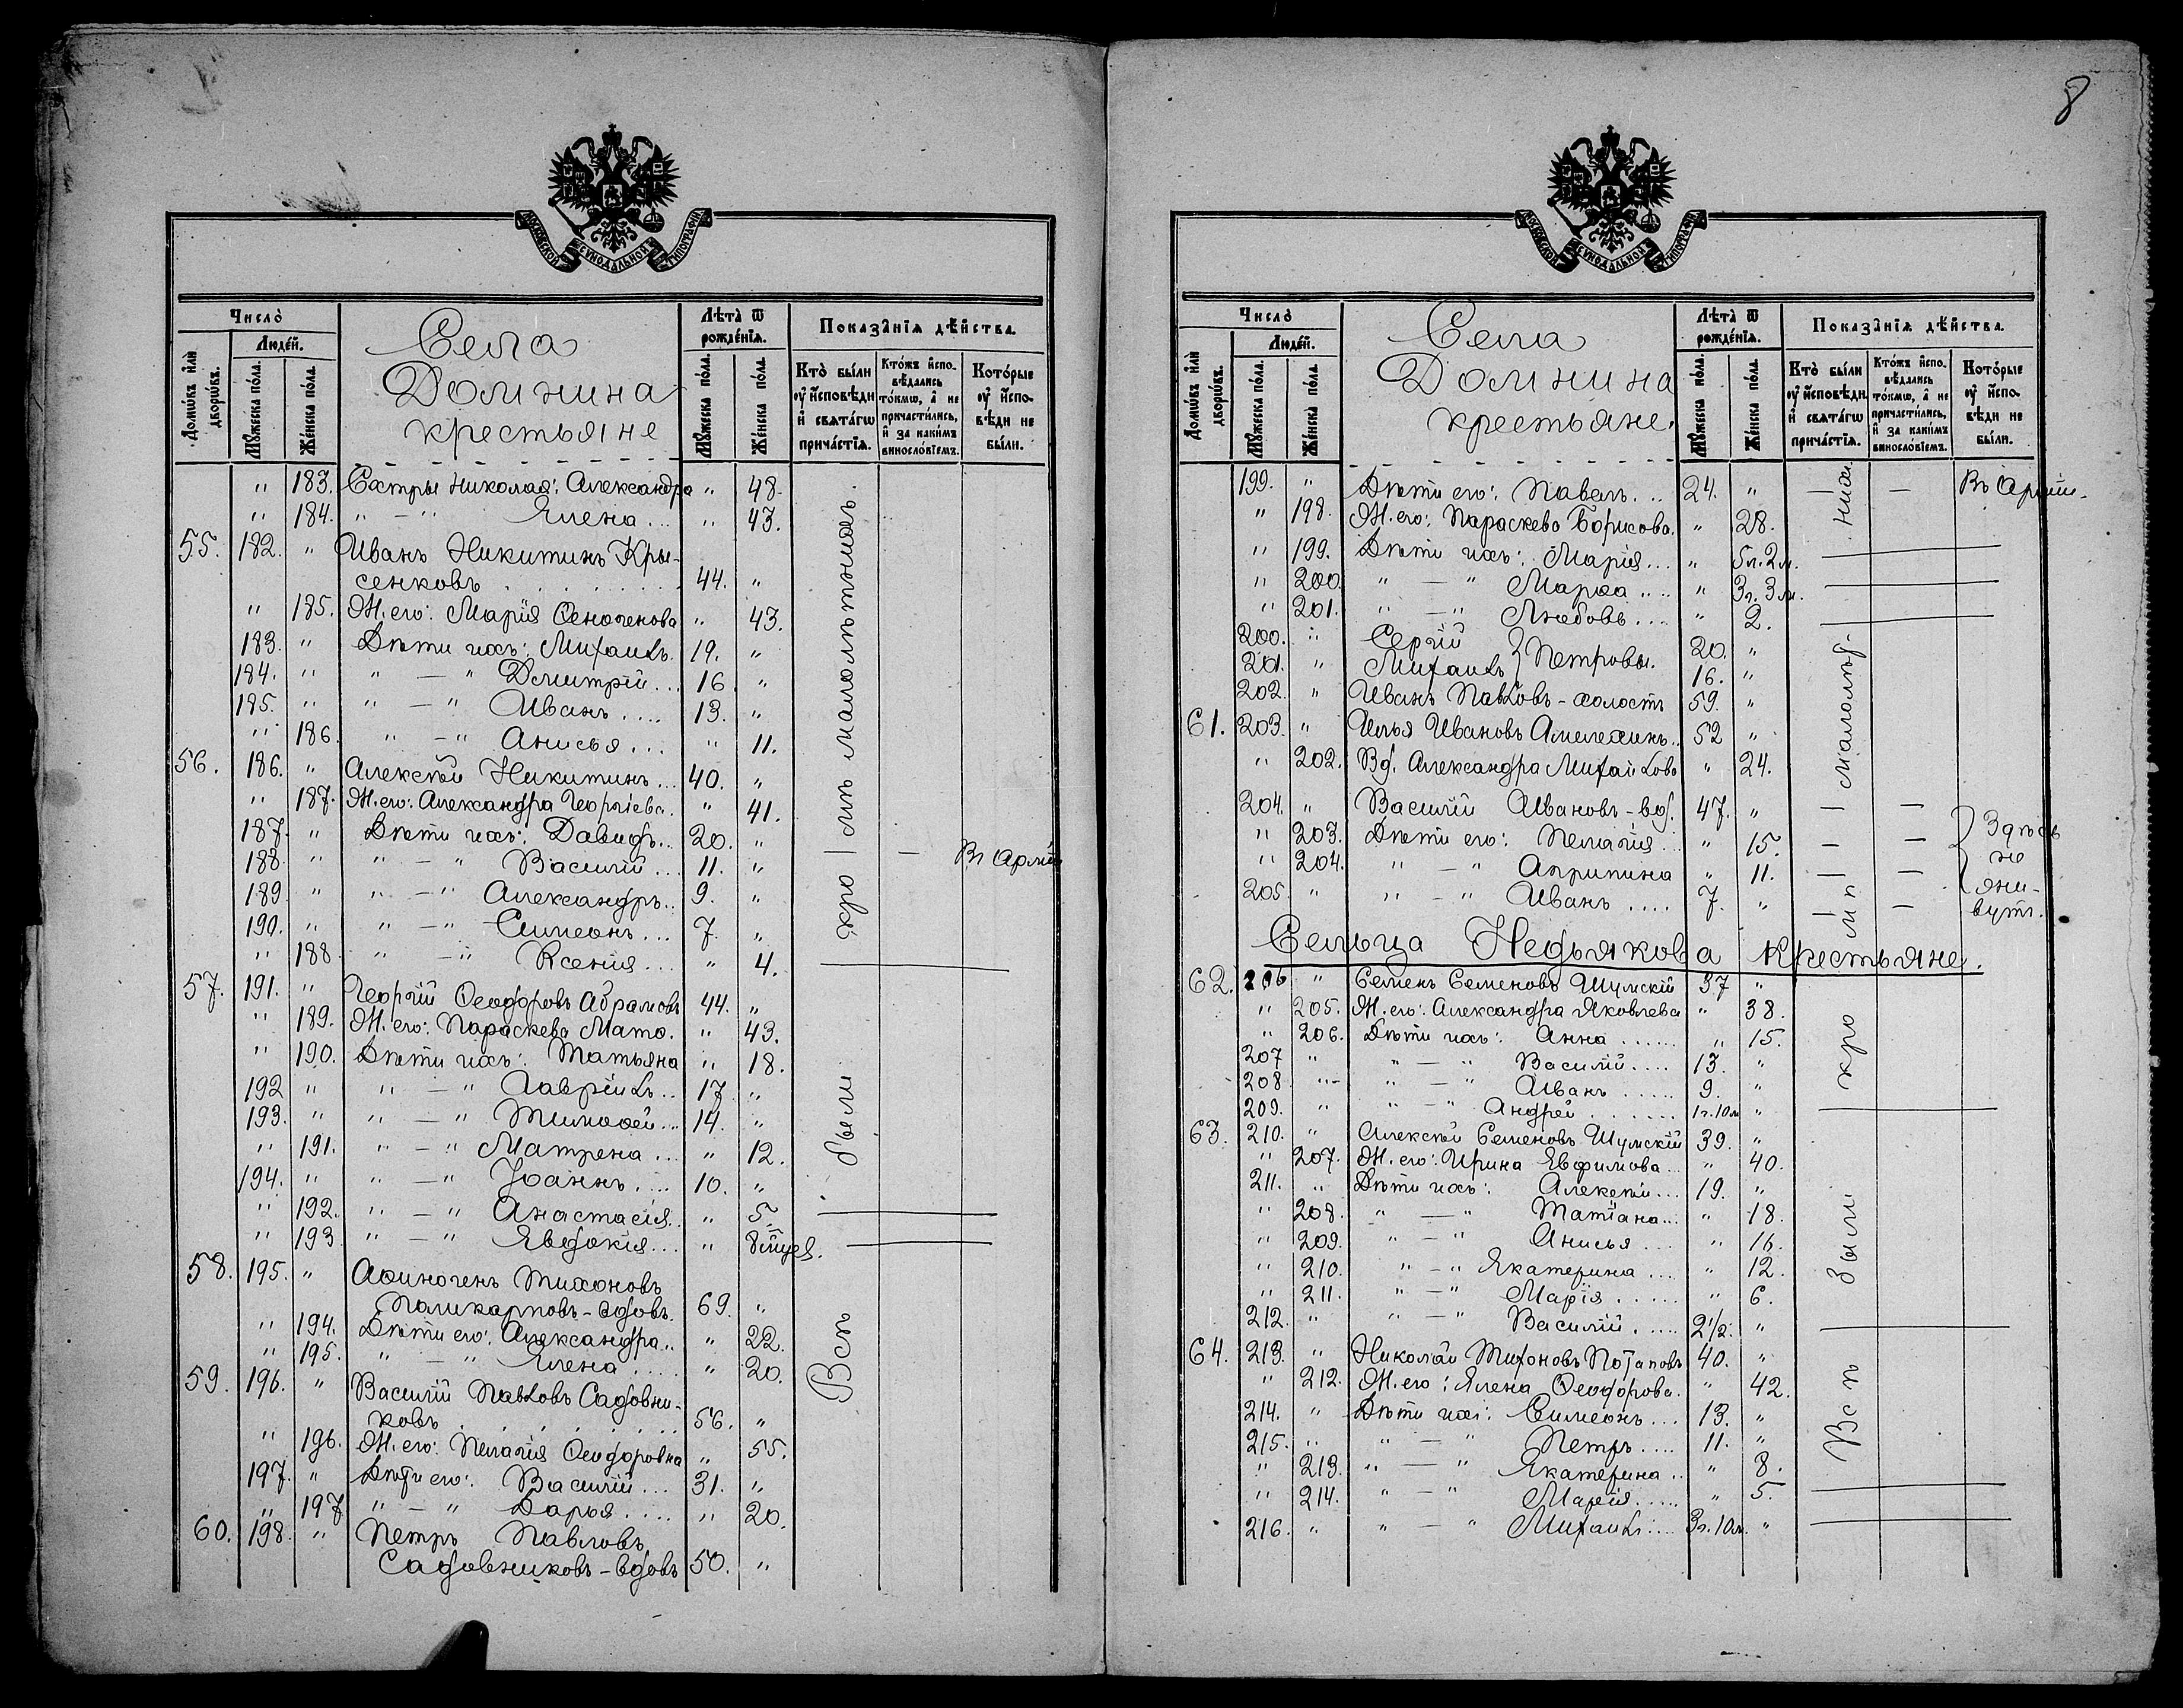 8
МОСКОВСКОЙ СѴНОДАЛЬНОЙ ТИПОГРАФІИ
Число̀
Домѡ́въ и҆лѝ дворѡ́въ.
Люде́й.
Мꙋ́жеска по́ла.
Же́нска по́ла.
Села
Домнина
крестьяне
Лѣ́та ѿ рожде́нїѧ.
Мꙋ́жеска по́ла.
Же́нска по́ла.
Показа̑нїѧ дѣ́йства.
Кто̀ бы́ли ᲂу҆ и҆сповѣ́ди и҆ свѧта́гѡ прича́стїѧ.
Кто́жъ и҆сповѣ́дались то́кмѡ, а҆ не причасти́лись, и҆ за каки́мъ винословїемъ.
Кото́рые ᲂу҆ и҆сповѣ́ди не бы́ли.
" 183. Сестры Николая: Александра " 48.
" 184. " — " Елена... " 43.
55. 182. " Иванъ Никитинъ Кры-
сенковъ 44. "
" 185. Ж. его: Марія Ѳеногенова " 43.
183. " Дѣти ихъ: Михаилъ. 19. "
184. " " — " Дмитрій... 16 "
185. " " — " Иванъ.... 13. "
" 186. " — " Анисья... " 11.
56. 186. " Алексѣй Никитинъ... 40. "
" 187. Ж. его: Александра Георгіева. " 41.
187. " Дѣти ихъ: Давидъ.. 20. " | — Въ Арміи
188. " " — " Василій... 11. "
189. " " — " Александръ.. 9. "
190. " " — " Симеонъ... 7. "
" 188 " — " Ксенія... " 4.
57. 191. " Георгій Ѳеодоровъ Абрамовъ 44. "
" 189. Ж. его: Параскева Матѳ. " 43.
" 190. Дѣти ихъ: Татьяна " 18.
192 " " — " Гавріилъ.. 17. "
193. " " — " Тимоѳей... 14. "
" 191. " — " Матрена... " 12.
194. " " — " Іоаннъ.... 10. "
" 192. " — " Анастасія.. " 5.
" 193. " — " Евдокія... "
58. 195. " Аѳиногенъ Тихоновъ
Поликарповъ - вдовъ. 69. "
" 194. Дѣти его: Александра.. " 22.
" 195. " — " Елена.... " 20.
59. 196. " Василій Павловъ Садовни-
ковъ 56. "
" 196. Ж. его: Пелагія Ѳеодоровна " 55.
197. " Дѣти его: Василій... 31. "
" 197 " — " Дарья.... " 20.
60. 198. " Петръ Павловъ
Садовниковъ - вдовъ 50. "
Всѣ были кромѣ малолѣтнихъ.
МОСКОВСКОЙ СѴНОДАЛЬНОЙ ТИПОГРАФІИ
Число̀
Домѡ́въ и҆лѝ дворѡ́въ.
Люде́й.
Мꙋ́жеска по́ла.
Же́нска по́ла.
Села
Домнина
крестьяне.
Лѣ́та ѿ рожде́нїѧ.
Мꙋ́жеска по́ла.
Же́нска по́ла.
Показа̑нїѧ дѣ́йства.
Кто̀ бы́ли ᲂу҆ и҆сповѣ́ди и҆ свѧта́гѡ прича́стїѧ.
Кто́жъ и҆сповѣ́дались то́кмѡ, а҆ не причасти́лись, и҆ за каки́мъ винословїемъ.
Кото́рые ᲂу҆ и҆сповѣ́ди не бы́ли.
199. " Дѣти его: Павелъ... 24. " | — Въ Арміи.
" 198. Ж. его: Параскева Борисова. " 28.
" 199. Дѣти ихъ: Марія... " 5л. 2м.
" 200. " — " Марѳа.... " 3г. 3м.
" 201. " — " Любовь.... " 2.
200. " Сергій } Петровы. 20. "
201. " Михаилъ 16. "
202. " Иванъ Павловъ - холостъ 59. "
61. 203. " Илья Ивановъ Амелехинъ.. 52 "
" 202. Вд. Александра Михайлова " 24.
204. " Василій Ивановъ - вд. 47. " | —
" 203. Дѣти его: Пелагія.. " 15. | —
" 204. " — " Агрипина " 11. | —
205. " " — " Иванъ.... 7. " | —
} Здѣсь
не
жи-
вутъ.
Сельца Недьякова крестьяне.
62. 206 " Семенъ Семеновъ Шумскій 37 "
" 205. Ж. его: Александра Яковлева " 38.
" 206. Дѣти ихъ: Анна...... " 15.
207 " " — " Василій.... 13. "
208 " " — " Иванъ..... 9. "
209. " " — " Андрей...... 1г. 10м "
63. 210. " Алексѣй Семеновъ Шумскій 39. "
" 207. Ж. его: Ирина Евфимова... " 40.
211. " Дѣти ихъ: Алексѣй... 19. "
" 208. " — " Татіана... " 18.
" 209. " — " Анисья... " 16.
" 210. " — " Екатерина.... " 12.
" 211. " — " Марія..... " 6.
212. " " — " Василій..... 2½. "
64. 213. " Николай Тихоновъ Потаповъ 40. "
" 212. Ж. его: Елена Ѳеодорова. " 42.
214. " Дѣти ихъ: Симеонъ... 13. "
215. " " — " Петръ.... 11. "
" 213. " — " Екатерина.. " 8.
" 214. " — " Марія..... " 5.
216. " " — " Михаилъ.... 3г. 10м. "
мѣ малолѣт- нихъ.
Всѣ были кро